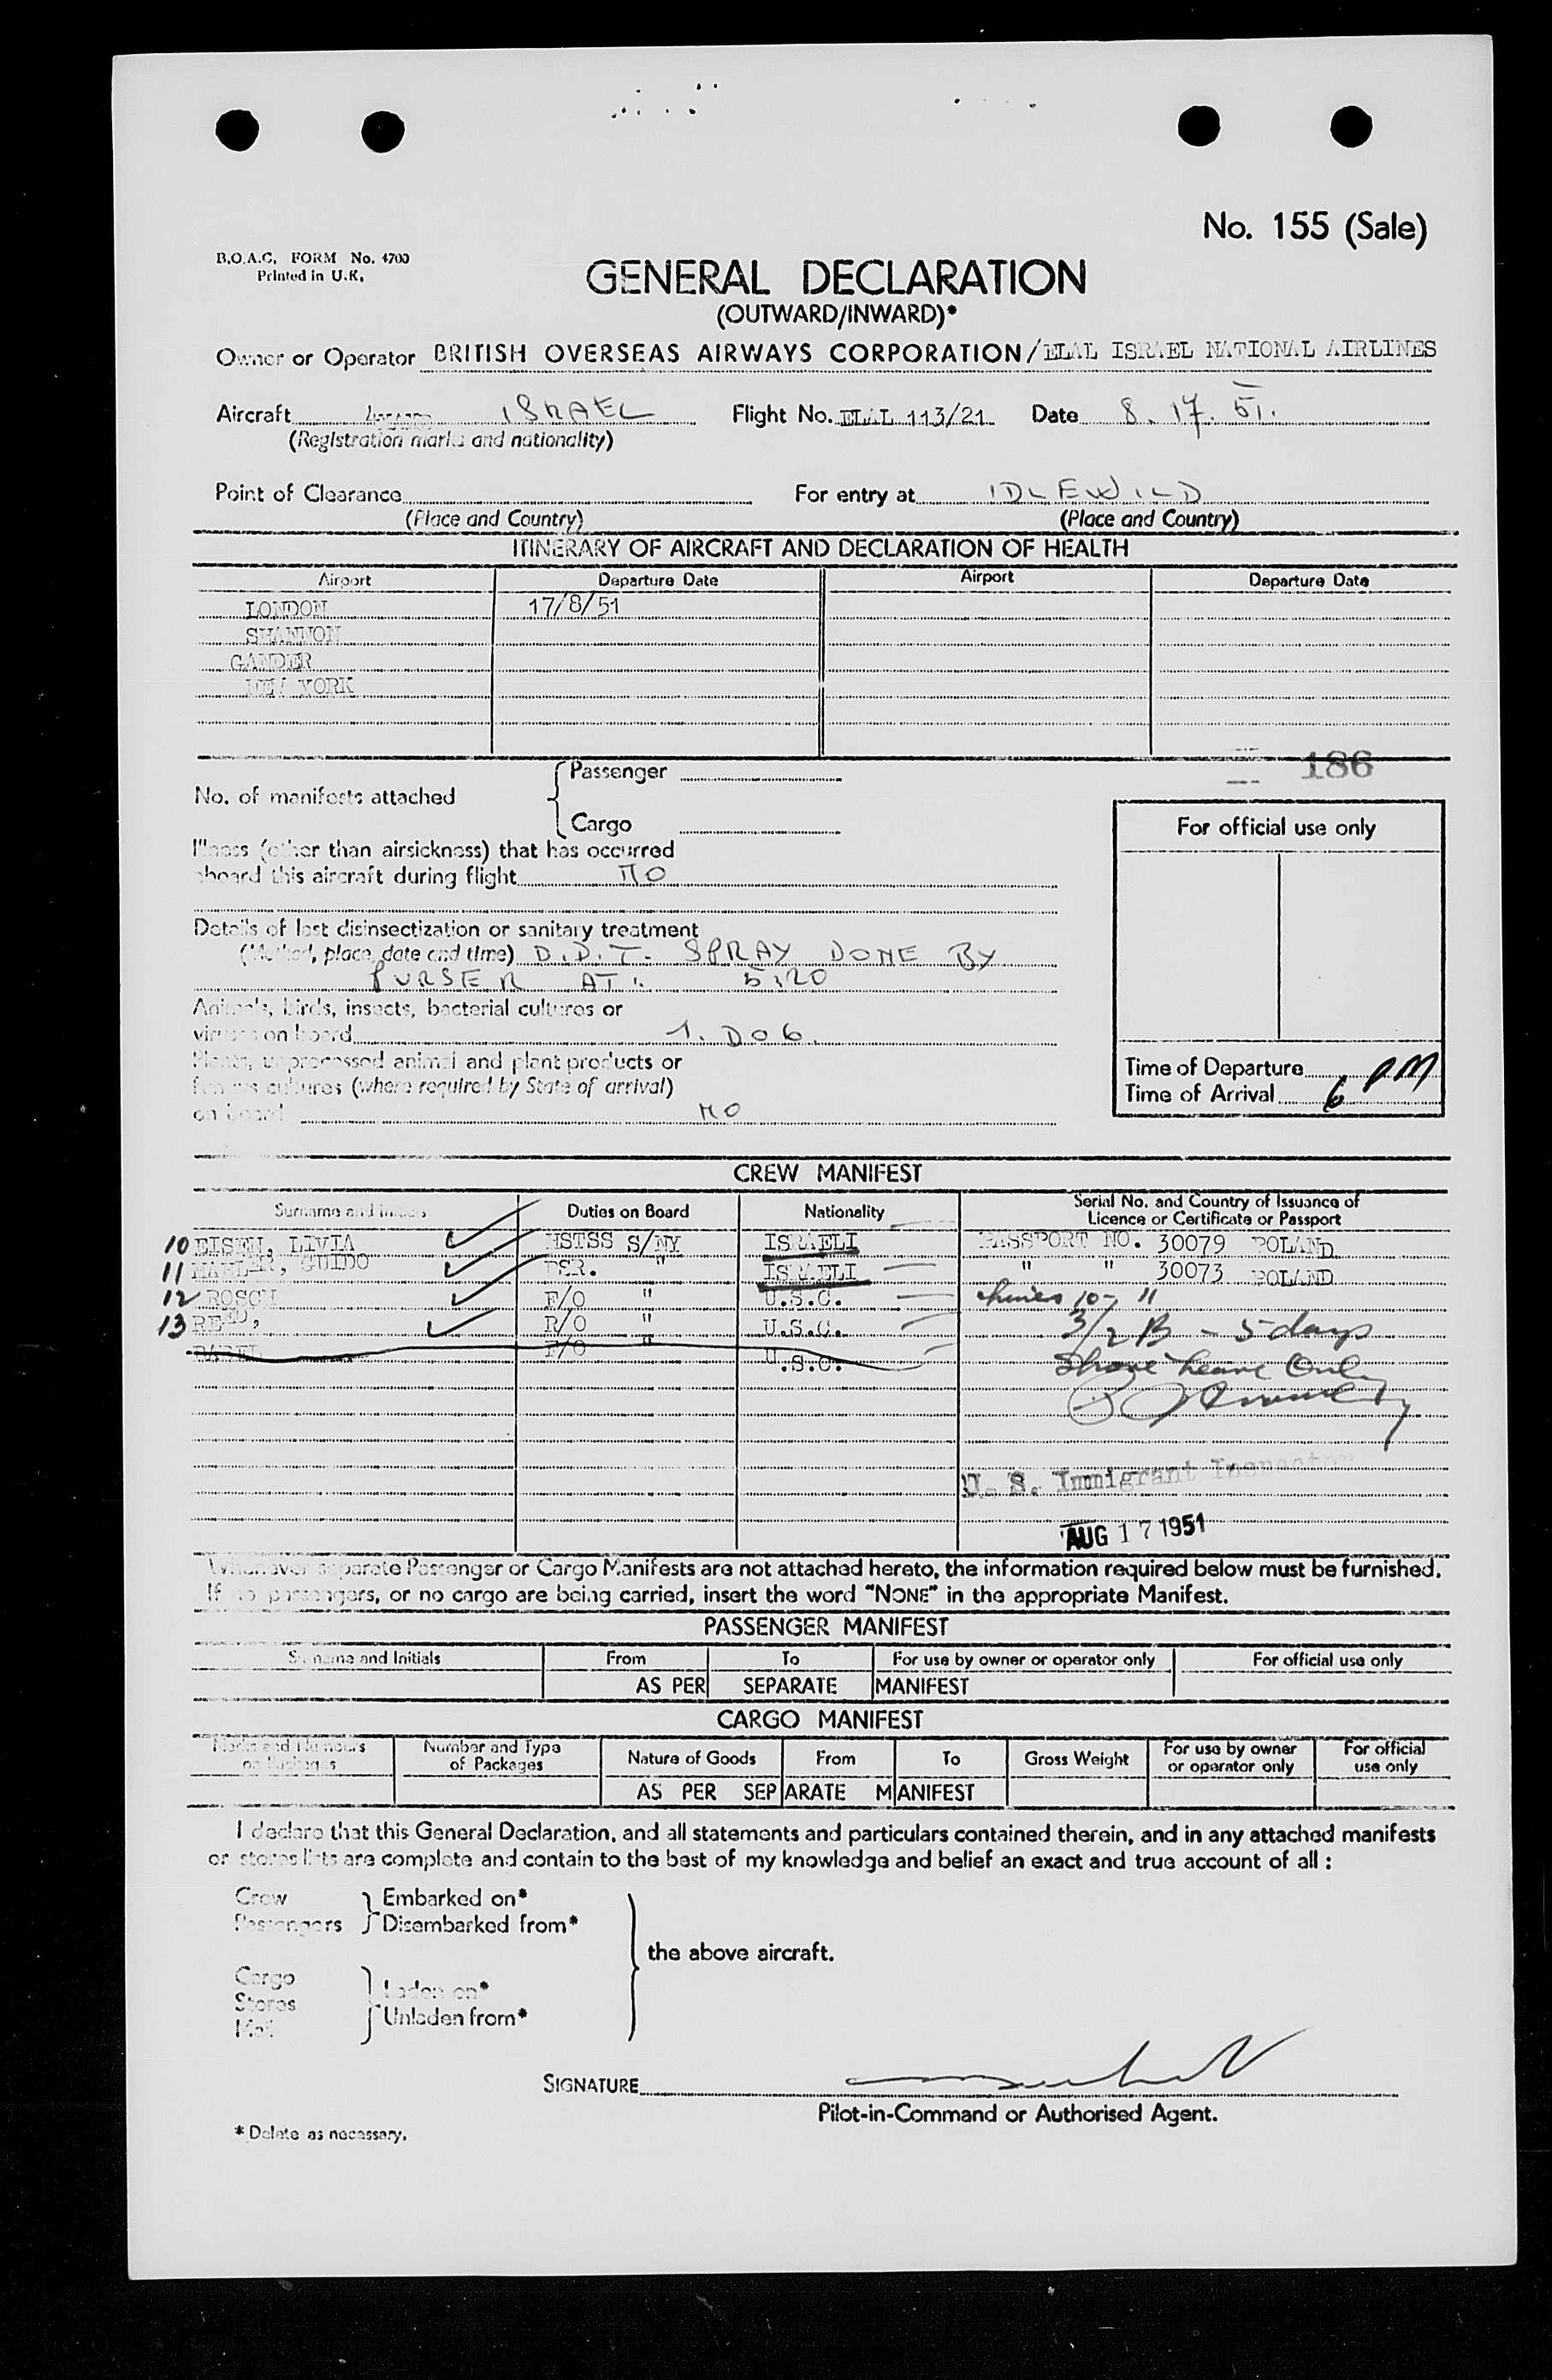 No. 155 (Sale)
B.O.A.C. FORM No. 4700
Printed in U.K.
GENERAL DECLARATION
(OUTWARD/INWARD)*
Owner or Operator BRITISH OVERSEAS AIRWAYS CORPORATION/ELAL ISRAEL NATIONAL AIRLINES
Aircraft ISRAEL Flight No. ELAL 113/21 Date 8. 17. 51.
(Registration marks and nationality)
Point of Clearance For entry at IDLEWILD
(Place and Country) (Place and Country)
ITINERARY OF AIRCRAFT AND DECLARATION OF HEALTH
Airport Departure Date Airport Departure Date
LONDON 17/8/51
SHANNON
GANDER
NEW YORK
186
No. of manifests attached { Passenger
Cargo
For official use only
Illness (other than airsickness) that has occurred
aboard this aircraft during flight NO
Details of last disinsectization or sanitary treatment
(Method, place, date and time) D.D.T. SPRAY DONE BY
PURSER AT: 5:20
Animals, birds, insects, bacterial cultures or
viruses on board 1. DOG.
Plants, unprocessed animal and plant products or
fungus cultures (where required by State of arrival)
on board NO
Time of Departure
Time of Arrival 6 PM
CREW MANIFEST
Surname and Initials Duties on Board Nationality Serial No. and Country of Issuance of
Licence or Certificate or Passport
10 EISEN, LIVIA HSTSS S/NY ISRAELI PASSPORT NO. 30079 POLAND
11 MAHLER, GUIDO PSR. " ISRAELI " " 30073 POLAND
12 ROSCH F/O " U.S.C. 10- 11
13 REED, R/O " U.S.C. 3/2 B - 5 days
F/O " U.S.C. Shore Leave Only
U. S. Immigrant Inspector
AUG 17 1951
Whenever separate Passenger or Cargo Manifests are not attached hereto, the information required below must be furnished.
If no passengers, or no cargo are being carried, insert the word "NONE" in the appropriate Manifest.
PASSENGER MANIFEST
Surname and Initials From To For use by owner or operator only For official use only
AS PER SEPARATE MANIFEST
CARGO MANIFEST
Marks and Numbers on Packages Number and Type of Packages Nature of Goods From To Gross Weight For use by owner or operator only For official use only
AS PER SEPARATE MANIFEST
I declare that this General Declaration, and all statements and particulars contained therein, and in any attached manifests
or stores lists are complete and contain to the best of my knowledge and belief an exact and true account of all :
Crew } Embarked on*
Passengers } Disembarked from*
the above aircraft.
Cargo
Stores } Laden on*
Mail } Unladen from*
SIGNATURE
Pilot-in-Command or Authorised Agent.
* Delete as necessary.